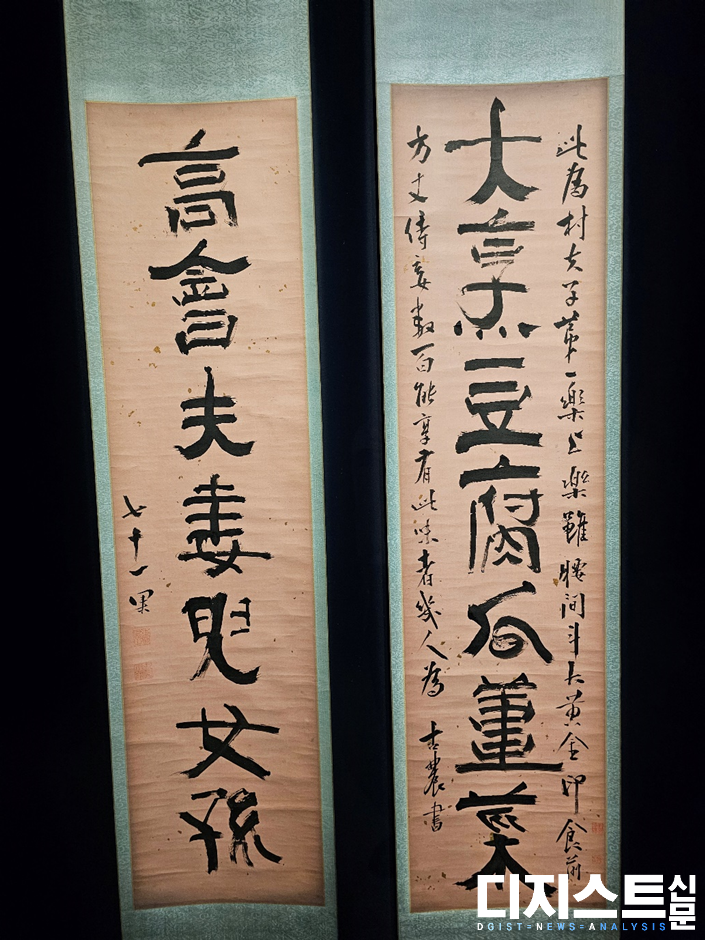 此為村夫子第一樂上樂雖腰間斗大黃金印食前
大烹豆腐瓜薑菜
方丈侍妾數百能享有此味者幾人為 古農書
高會夫妻兒女孫
七十一果
디지스트신문
DGIST=NEWS=ANALYSIS